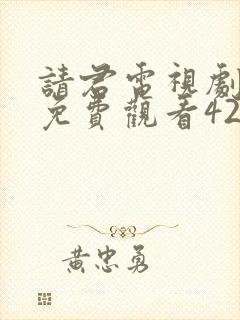 請君電視劇
免費觀看42
黃忠勇